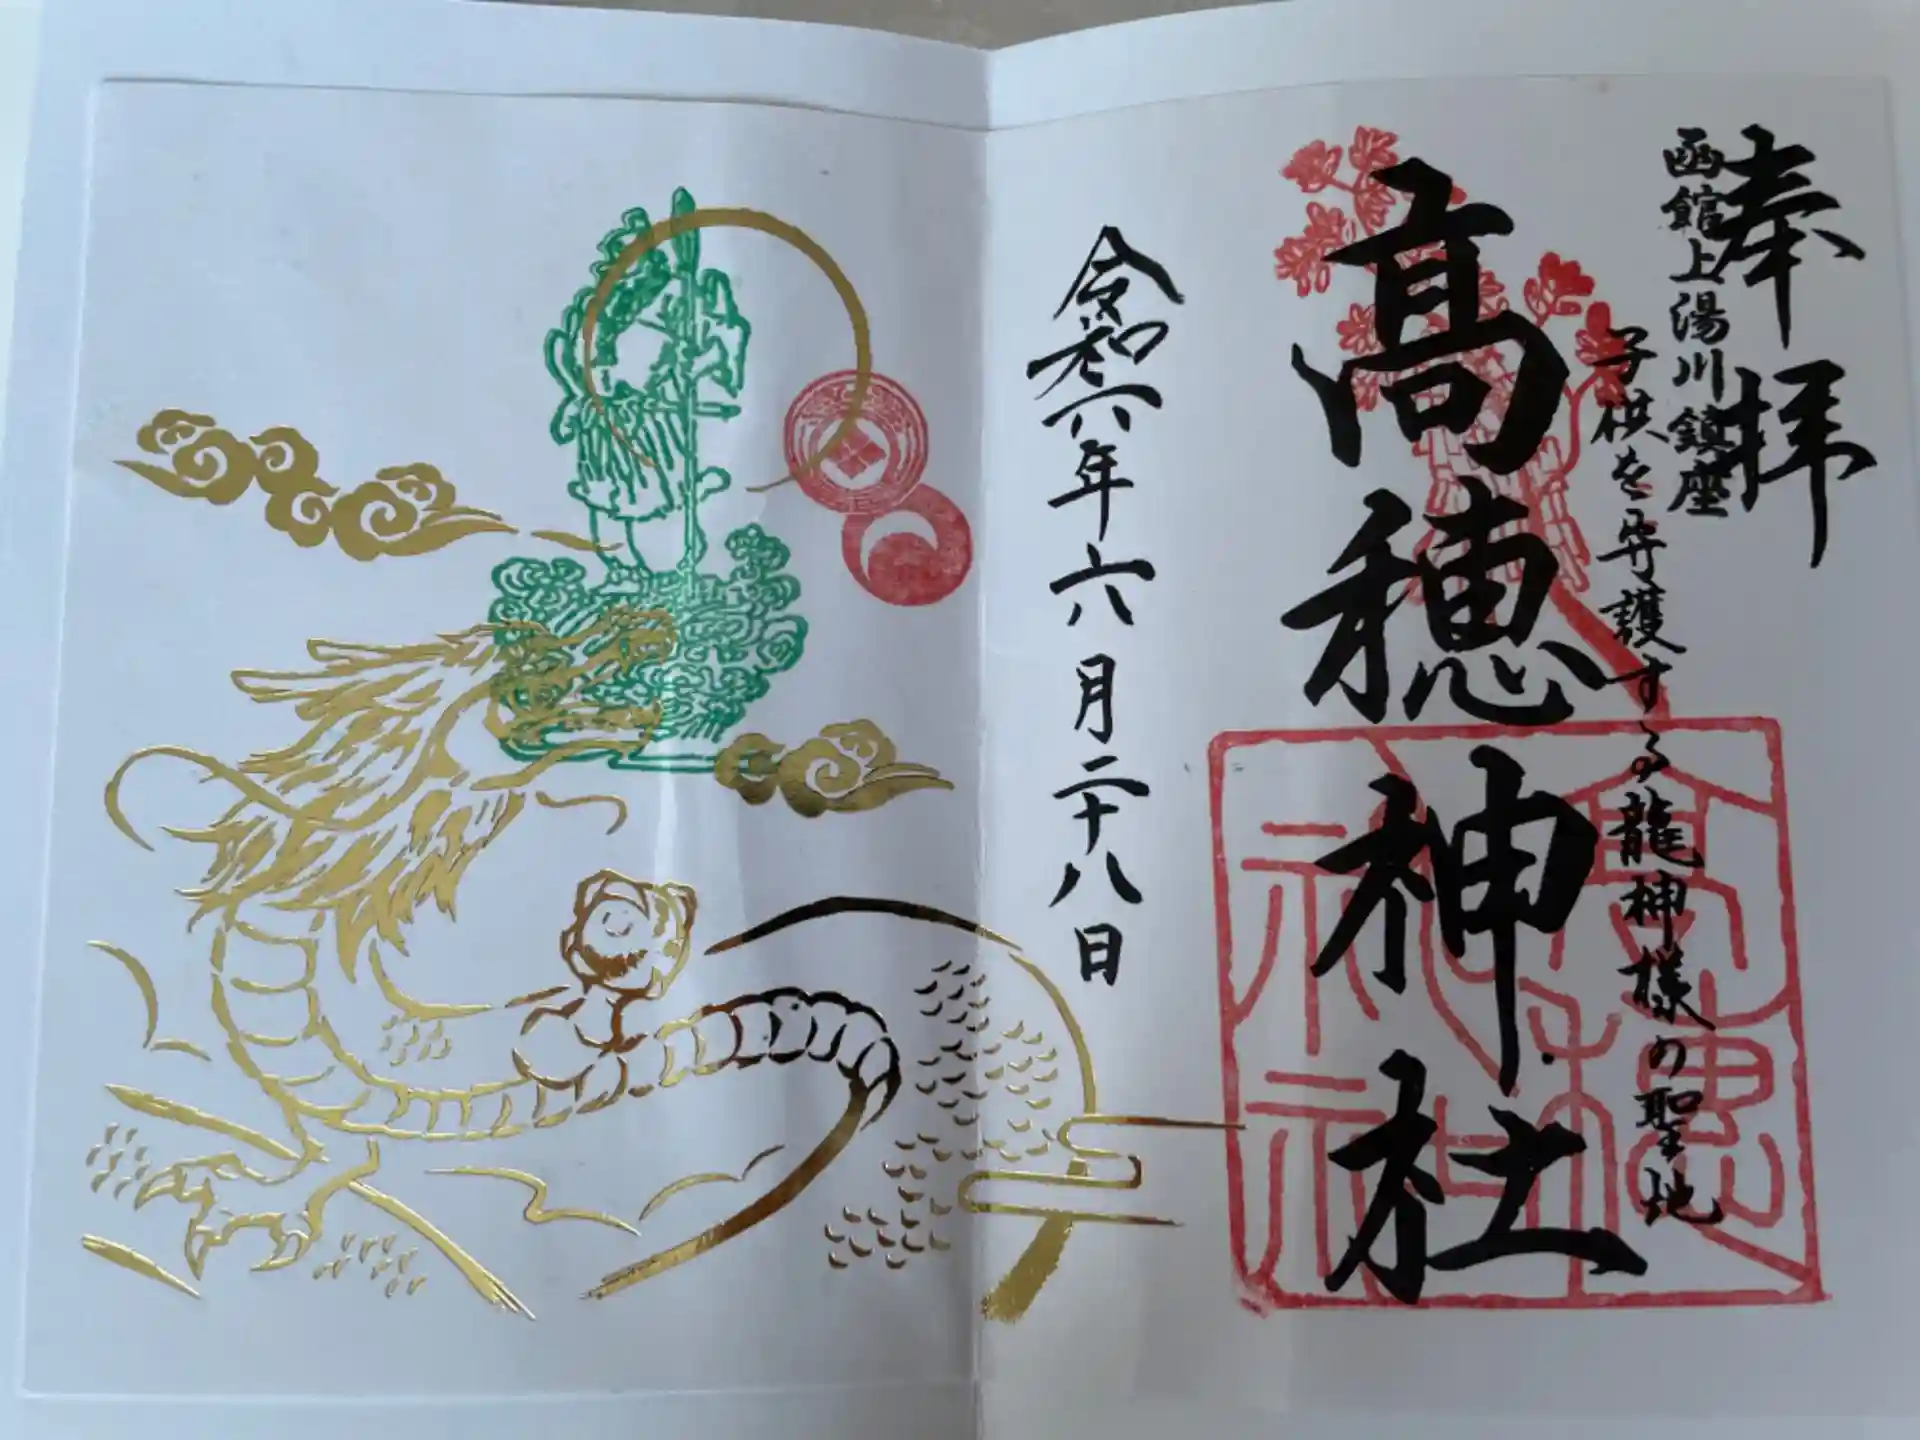 奉拝
函館上湯川鎮座
子供を守護する龍神様の聖地
高穂神社
高穂神社
令和六年六月二十八日